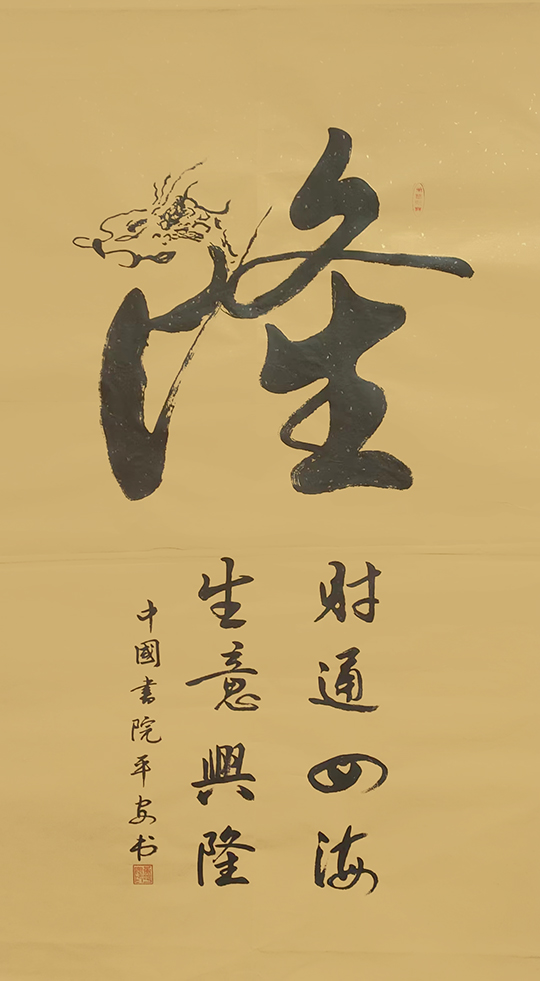 隆
财通四海
生意興隆
中國書院平安书